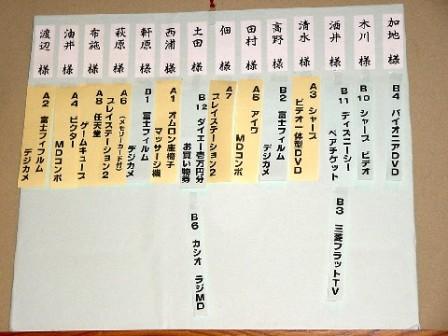 加地 様
B4 パイオニアDVD
木川 様
B10 シャープ ビデオ
酒井 様
B11 ディズニーシー
ペアチケット
B3 三菱フラットTV
清水 様
A3 シャープ
ビデオ一体型DVD
高野 様
B2 富士フィルム
デジカメ
田村 様
A5 アイワ
MDコンポ
佃 様
A7
プレイステーション2
土田 様
B12 ダイエー壱万円分
お買い物券
B6 カシオ ラジMD
西浦 様
A1 オムロン座椅子
マッサージ機
軒原 様
B1 富士フィルム
デジカメ
萩原 様
A6 (メモリーカード付)
プレイステーション2
布施 様
A8 任天堂
ゲームキューブ
油井 様
A4 ビクター
MDコンポ
渡辺 様
A2 富士フィルム
デジカメ